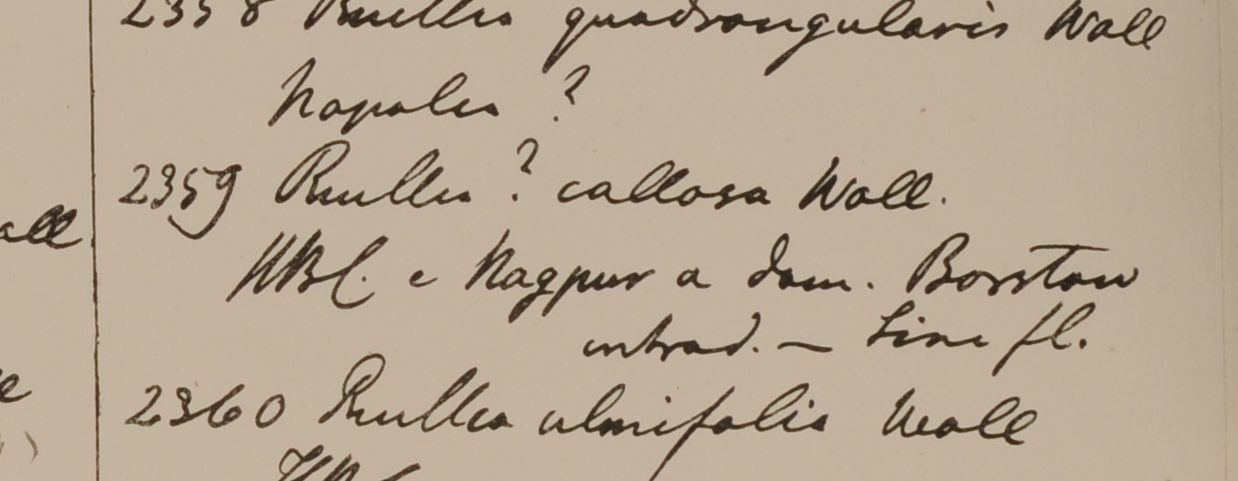 2358 Ruellia quadrangularis Wall
Napalia ?
2359 Ruellia ? callosa Wall.
all
HBC. e Nagpur a dom. Borstow
introd. — Sine fl.
2360 Ruellia ulmifolia Wall
HBC